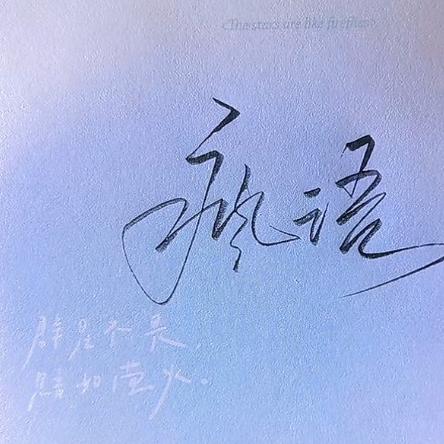 <The stars are like fireflies>
疯语
群星不
如萤火。